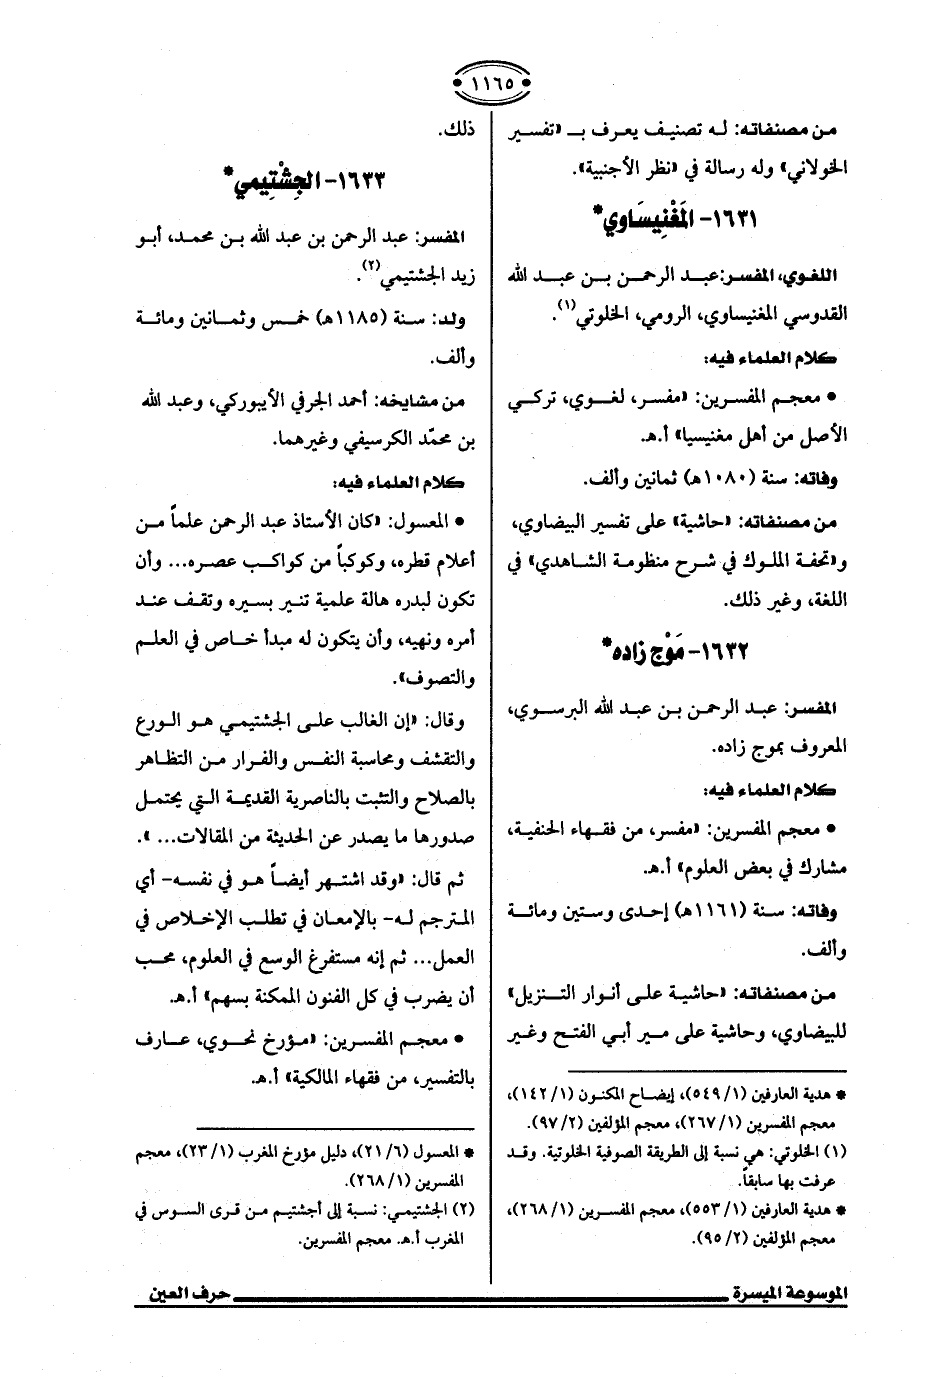 ١١٦٥
من مصنفاته: له تصنيف يعرف بـ «تفسير
الخولاني» وله رسالة في «نظر الأجنبية».
١٦٣١- المَغْنِيسَاوي*
اللغوي، المفسر:عبد الرحمن بن عبد الله
القدوسي المغنيساوي، الرومي، الخلوتي(١).
كلام العلماء فيه:
• معجم المفسرين: «مفسر، لغوي، تركي
الأصل من أهل مغنيسيا» أ.هـ.
وفاته: سنة (١٠٨٠هـ) ثمانين وألف.
من مصنفاته: «حاشية» على تفسير البيضاوي،
و«تحفة الملوك في شرح منظومة الشاهدي» في
اللغة، وغير ذلك.
١٦٣٢- مَوْج زاده*
المفسر: عبد الرحمن بن عبد الله البرسوي،
المعروف بموج زاده.
كلام العلماء فيه:
• معجم المفسرين: «مفسر، من فقهاء الحنفية،
مشارك في بعض العلوم» أ.هـ.
وفاته: سنة (١١٦١هـ) إحدى وستين ومائة
وألف.
من مصنفاته: «حاشية على أنوار التنزيل»
للبيضاوي، وحاشية على مير أبي الفتح وغير
* هدية العارفين (١/ ٥٤٩)، إيضاح المكنون (١/ ١٤٢)،
معجم المفسرين (١/ ٢٦٧)، معجم المؤلفين (٢/ ٩٧).
(١) الخلوتي: هي نسبة إلى الطريقة الصوفية الخلوتية. وقد
عرفت بها سابقاً.
* هدية العارفين (١/ ٥٥٣)، معجم المفسرين (١/ ٢٦٨)،
معجم المؤلفين (٢/ ٩٥).
ذلك.
١٦٣٣- الجِشْتِيمي*
المفسر: عبد الرحمن بن عبد الله بن محمد، أبو
زيد الجشتيمي(٢).
ولد: سنة (١١٨٥هـ) خمس وثمانين ومائة
وألف.
من مشايخه: أحمد الجرفي الأيبوركي، وعبد الله
بن محمّد الكرسيفي وغيرهما.
كلام العلماء فيه:
• المعسول: «كان الأستاذ عبد الرحمن علماً من
أعلام قطره، وكوكباً من كواكب عصره... وأن
تكون لبدره هالة علمية تنير بسيره وتقف عند
أمره ونهيه، وأن يتكون له مبدأ خاص في العلم
والتصوف».
وقال: «إن الغالب على الجشتيمي هو الورع
والتقشف ومحاسبة النفس والفرار من التظاهر
بالصلاح والتثبت بالناصرية القديمة التي يحتمل
صدورها ما يصدر عن الحديثة من المقالات... ».
ثم قال: «وقد اشتهر أيضاً هو في نفسه- أي
المترجم له- بالإمعان في تطلب الإخلاص في
العمل... ثم إنه مستفرغ الوسع في العلوم، محب
أن يضرب في كل الفنون الممكنة بسهم» أ.هـ.
• معجم المفسرين: «مؤرخ نحوي، عارف
بالتفسير، من فقهاء المالكية» أ.هـ.
* المعسول (٦/ ٢١)، دليل مؤرخ المغرب (١/ ٢٣)، معجم
المفسرين (١/ ٢٦٨).
(٢) الجشتيمي: نسبة إلى أجشتيم من قرى السوس في
المغرب أ.هـ. معجم المفسرين.
الموسوعة الميسرة حرف العين